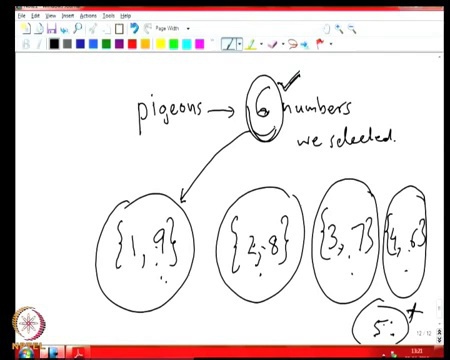 File Edit View Insert Actions Tools Help
Page Width
pigeons → 6 numbers
we selected.
{1, 9} {2, 8} {3, 7} {4, 6}
5
12 / 12
NPTEL
13:21